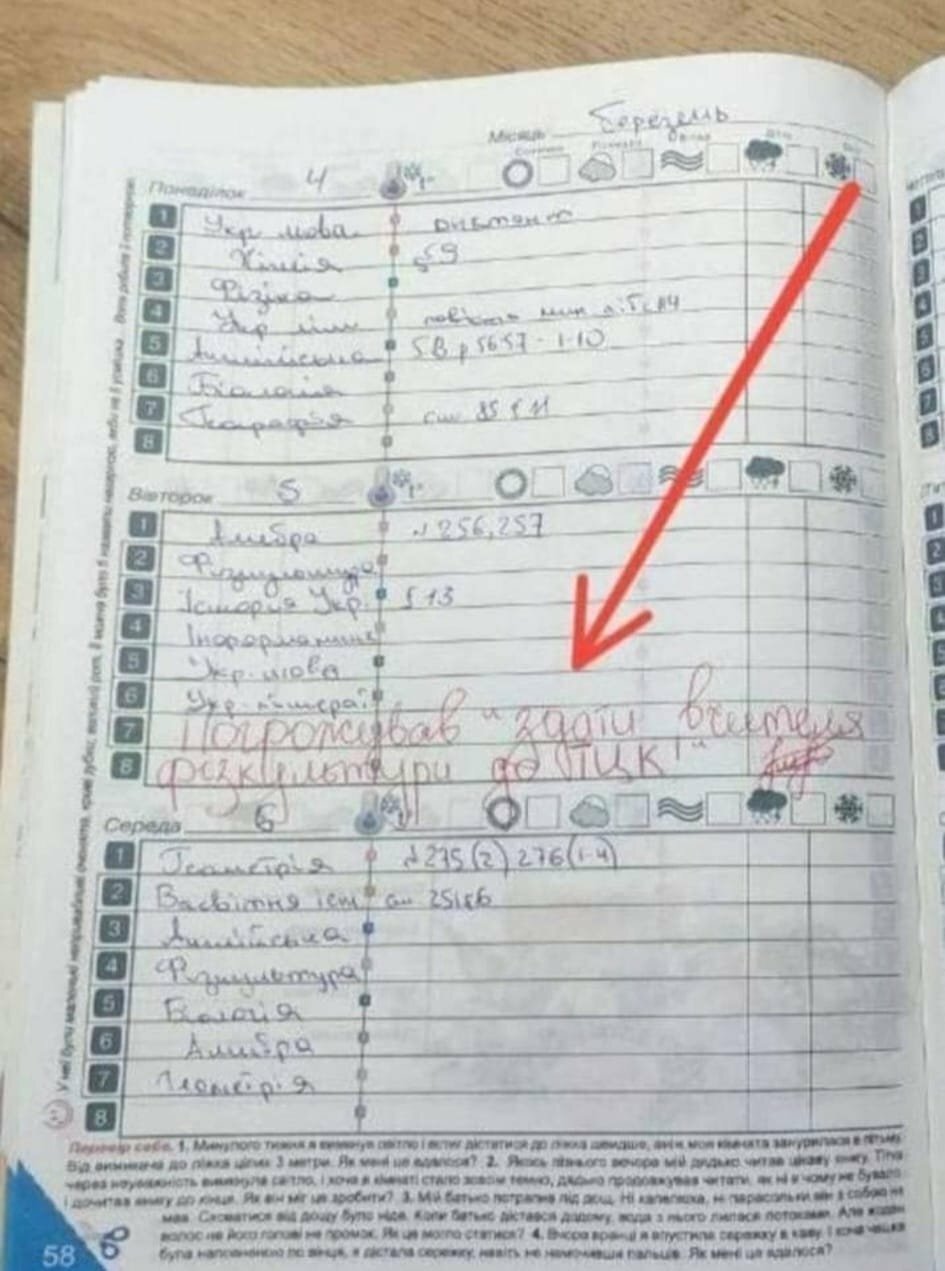 Місяць Березень
Понеділок 4
1 Укр мова диктант
2 Хімія §9
3 Фізика
4 Укр літ
5 Англійська SB p 56 57 - 1-10
6 Біологія
7 Географія
8
Вівторок 5
1 Алгебра № 256, 257
2 Фізкультура
3 Історія Укр. § 13
4 Інформатика
5 Укр. мова
6 Укр.
7 Погрожував "здати вчителя
8 фізкультури до ТЦК!"
Середа 6
1 Геометрія № 275(2) 276(1-4)
2 Всесвітня іст
3 Англійська
4 Фізкультура
5 Біологія
6 Алгебра
7 Геометрія
8
Перевір себе. 1. Минулого тижня я вимкнув світло і встиг дістатися до ліжка швидше, аніж моя кімната занурилася в пітьму.
Від вимикача до ліжка цілих 3 метри. Як мені це вдалося? 2. Якось пізнього вечора мій дядько читав цікаву книгу. Тітка
через неуважність вимкнула світло, і хоча в кімнаті стало зовсім темно, дядько продовжував читати, як ні в чому не бувало
і дочитав книгу до кінця. Як він міг це зробити? 3. Мій батько потрапив під дощ. Ні капелюха, ні парасольки він з собою не
мав. Сховатися від дощу було ніде. Коли батько дістався додому, вода з нього лилася потоками. Але жоден
волос на його голові не промок. Як це могло статися? 4. Вчора вранці я впустила сережку в каву. І хоча чашка
була наповненою по вінця, я дістала сережку, навіть не намочивши пальців. Як мені це вдалося?
58